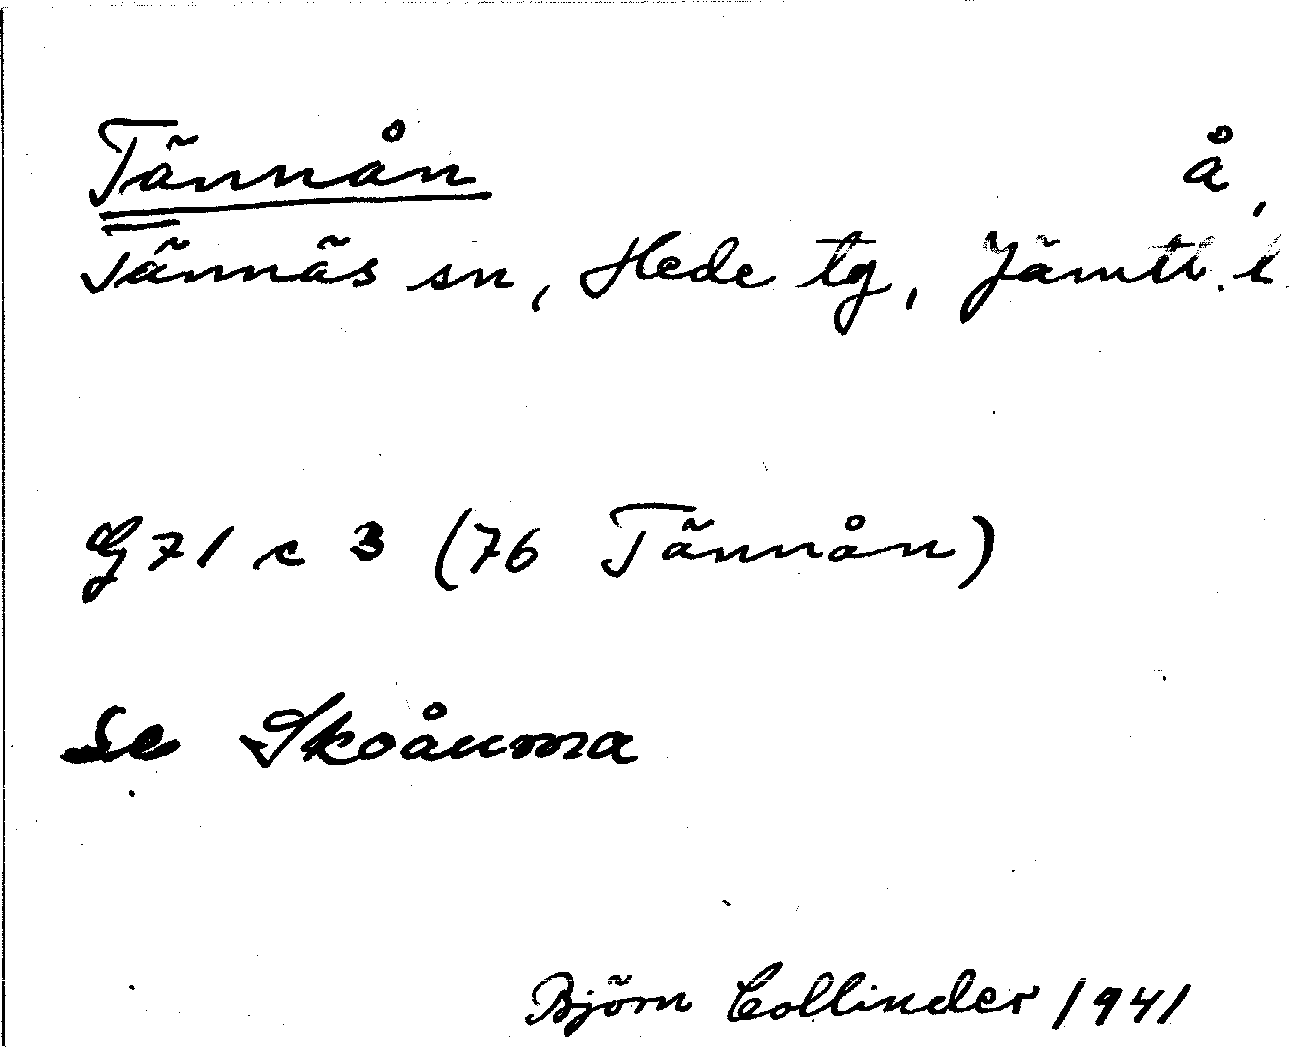 Tännån å,
Tännäs sn, Hede tg, Jämtl. l
G 71 c 3 (76 Tännån)
Se Skoånma
Björn Collinder 1941